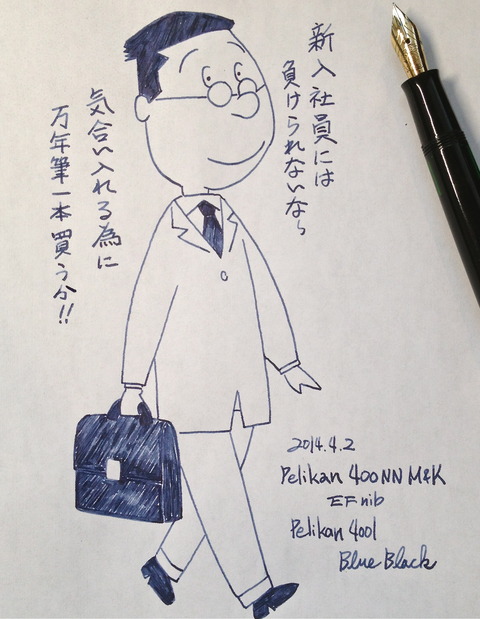 新入社員には
負けられないなら
気合い入れる為に
万年筆一本買う分!!
2014.4.2
Pelikan 400NN M&K
EF nib
Pelikan 4001
Blue Black